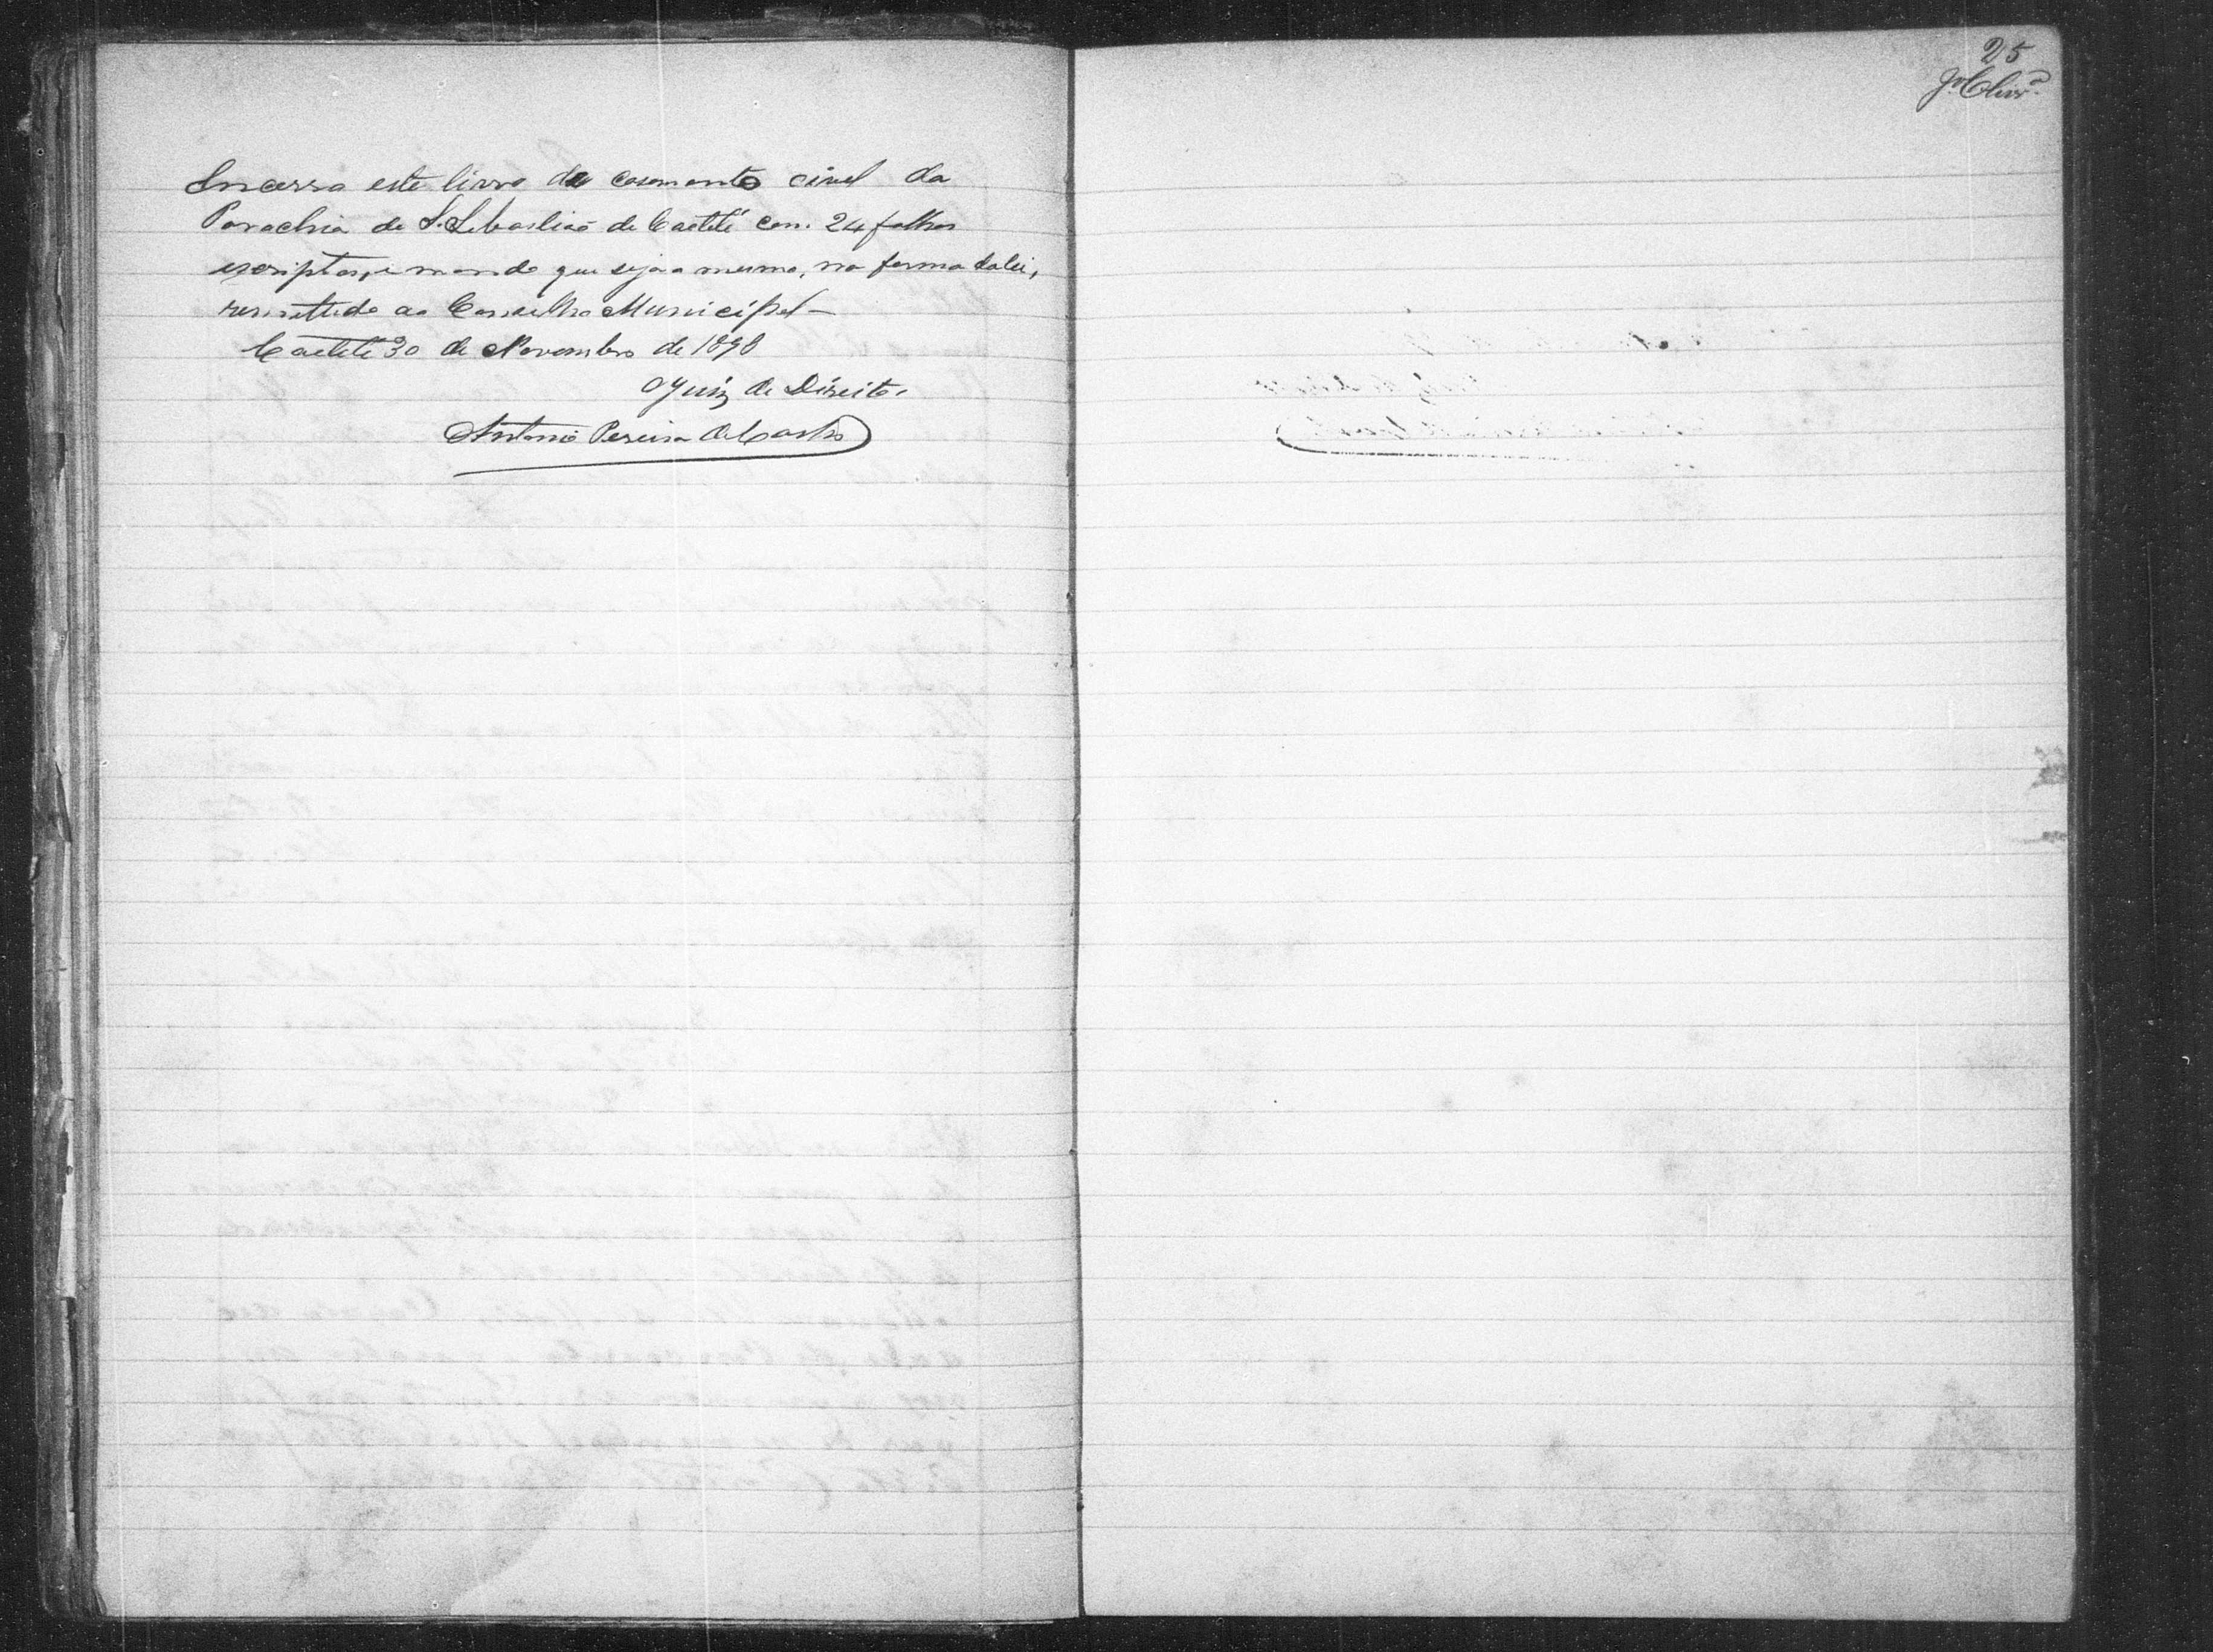 Incerro este livro de casamento civel da
Parachia de S. Sebastião de Caetité com 24 folhas
escriptas, e mando que seja o mesmo, na forma da lei,
remettido ao Conselho Municipal –
Caetité 30 de Novembro de 1898
O Juiz de Direito.
Antonio Pereira de Castro
25
Olivrª.